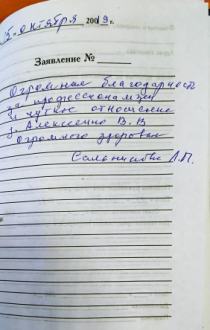 5 октября 2009 г.
Заявление №
Огромная благодарность
за профессионализм
и чуткое отношение
Алексеенко В. В
Огромного здоровья
Л.П.